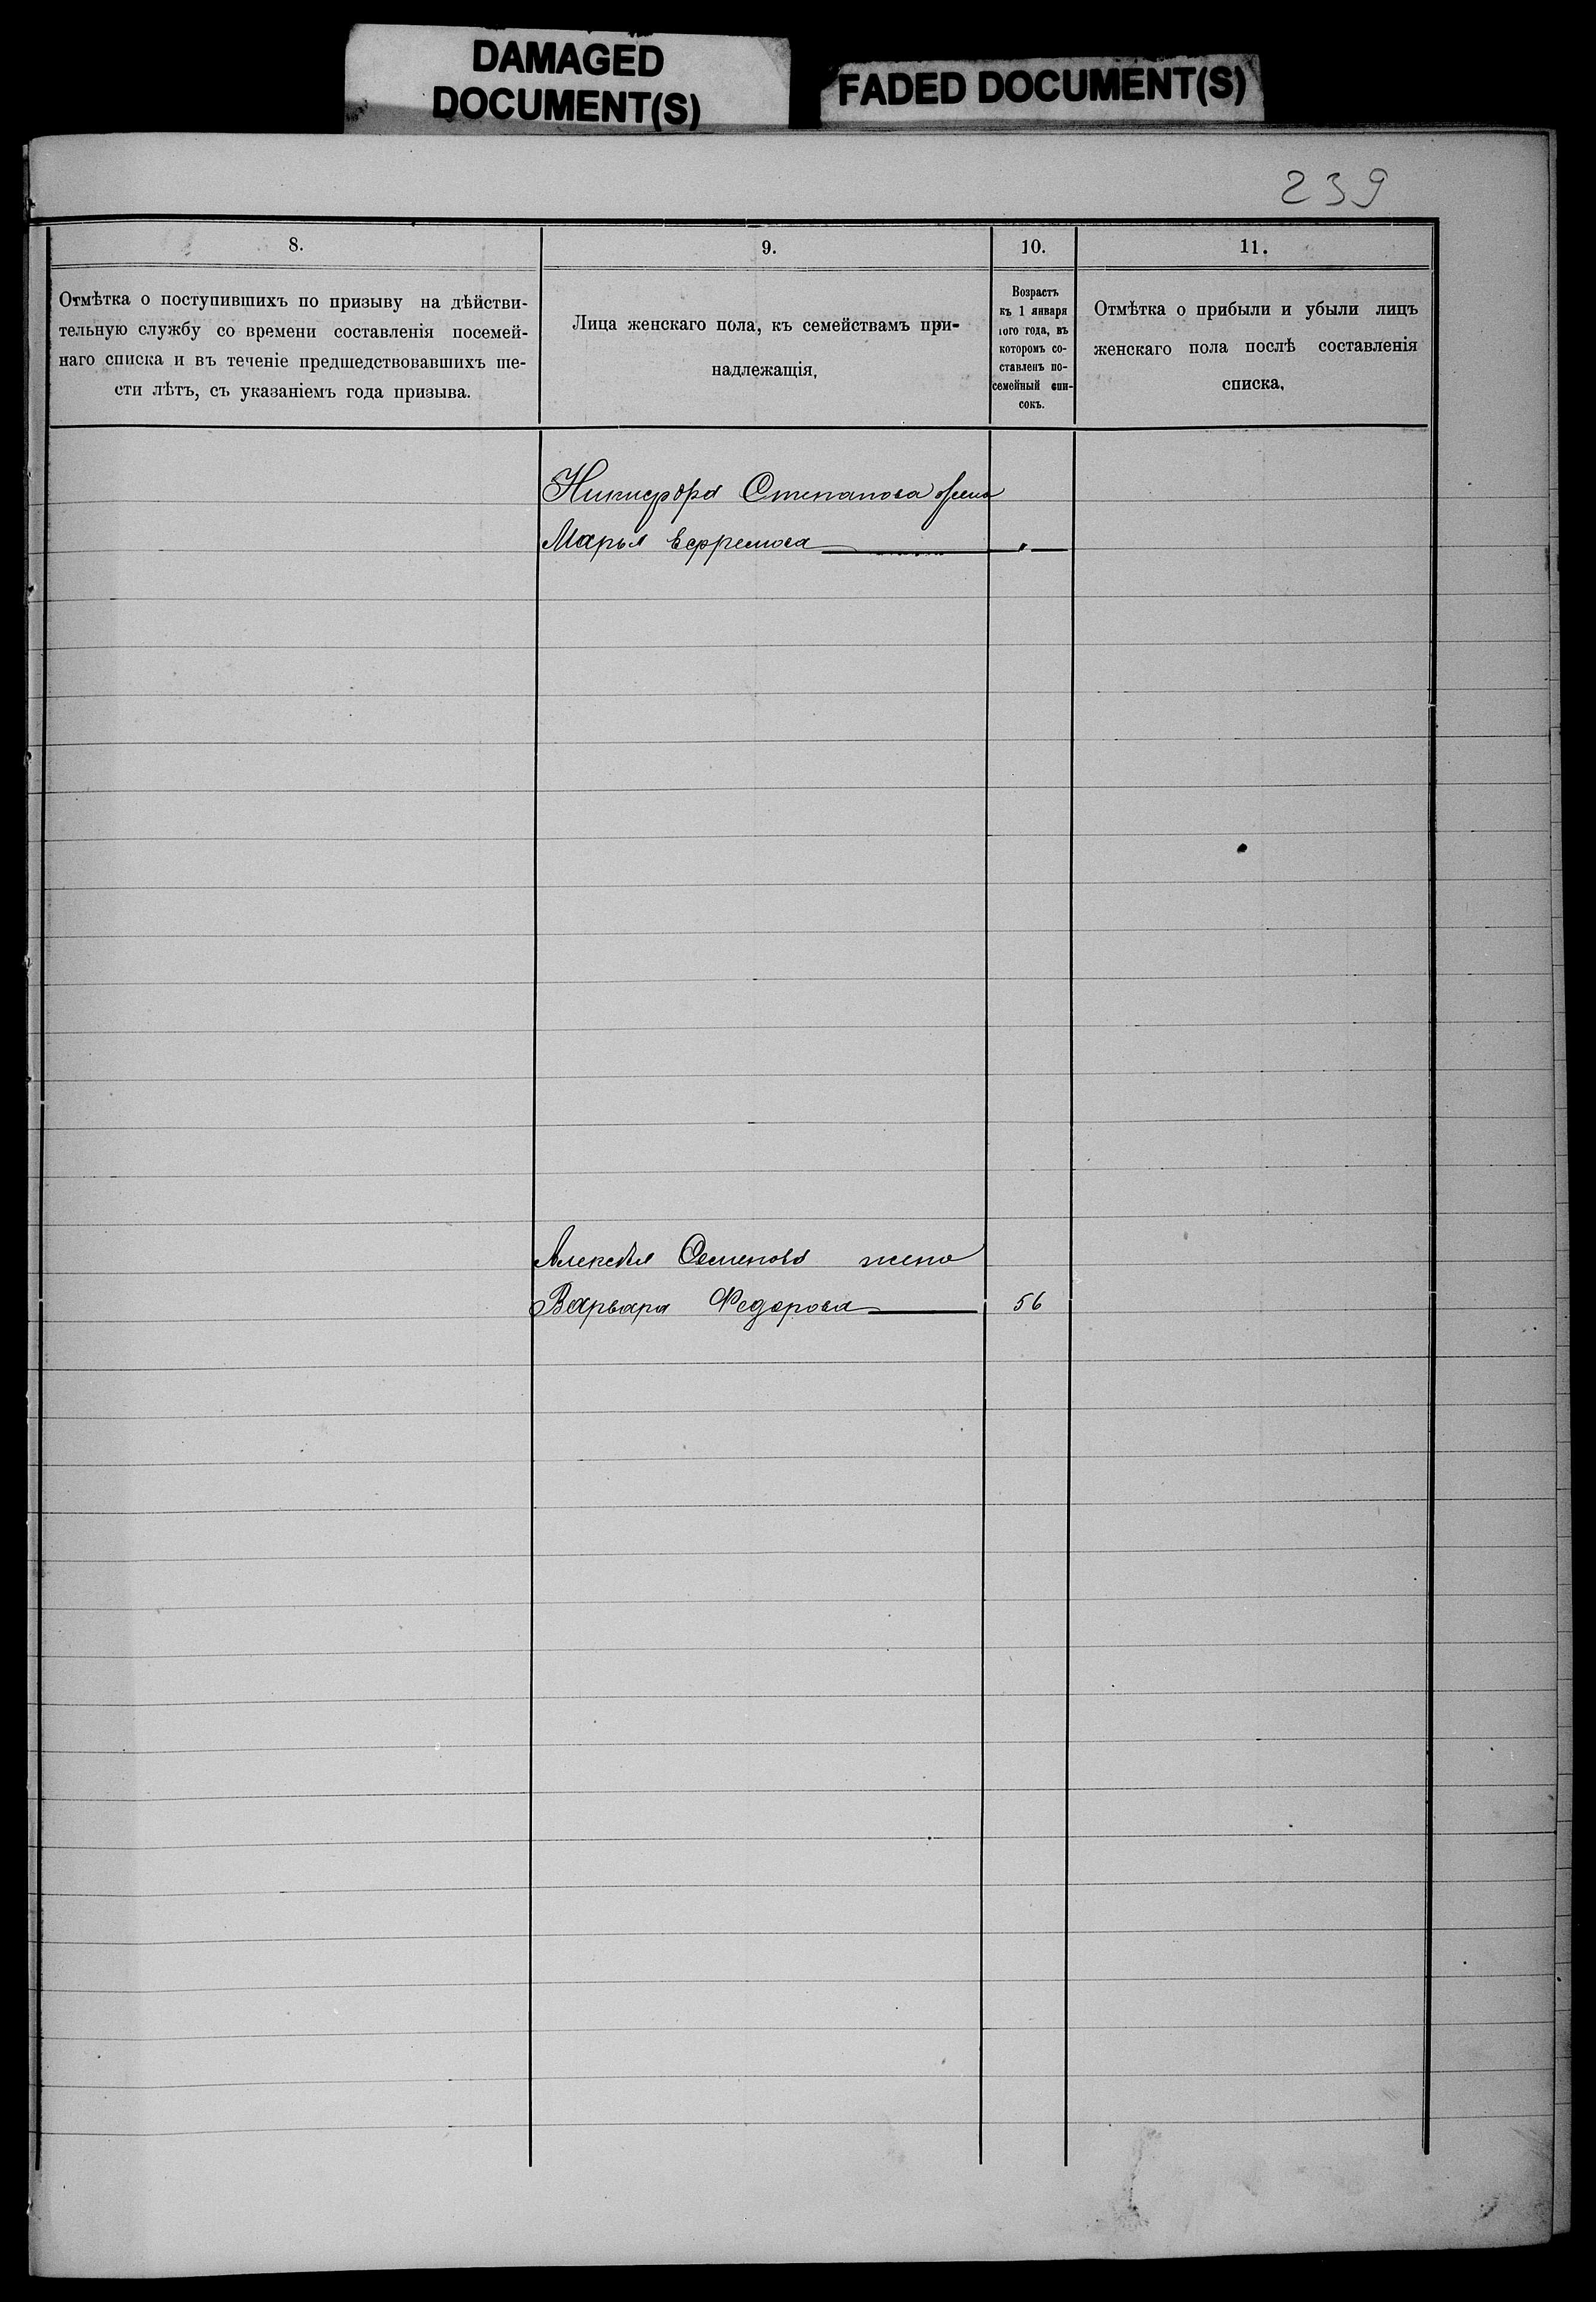 DAMAGED
DOCUMENT(S)
FADED DOCUMENT(S)
239
8.
Отмѣтка о поступившихъ по призыву на дѣйстви-
тельную службу со времени составленія посемей-
наго списка и въ теченіе предшедствовавшихъ ше-
сти лѣтъ, съ указаніемъ года призыва.
9.
Лица женскаго пола, къ семействамъ при-
надлежащія,
10.
Возрастъ
къ 1 января
того года, въ
которомъ со-
ставленъ по-
семейный спи-
сокъ.
11.
Отмѣтка о прибыли и убыли лицъ
женскаго пола послѣ составленія
списка.
Никифора Степанова жена
Марья Ефремова — " —
Алексѣя Семенова жена
Варвара Федорова — 56